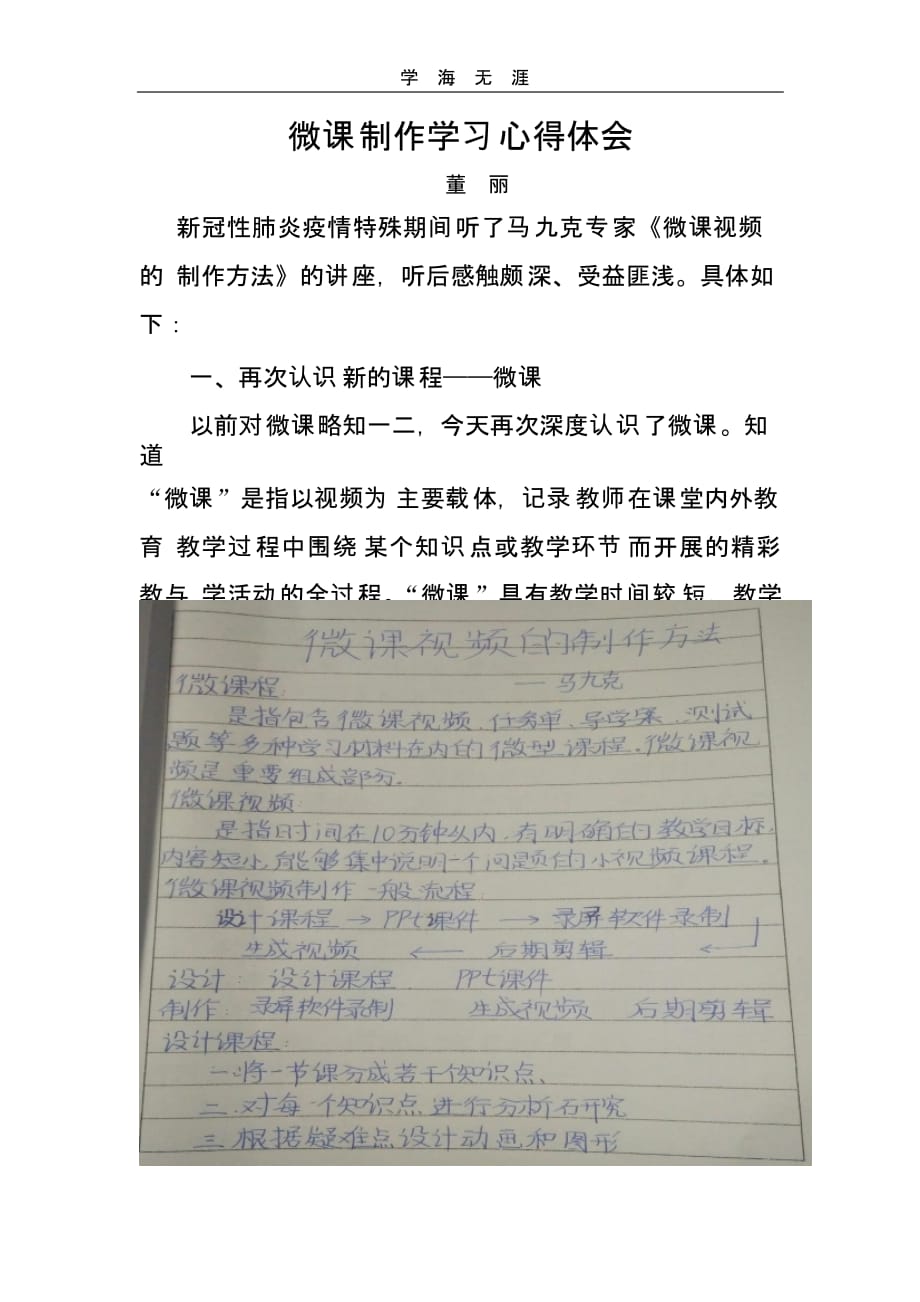 学 海 无 涯
微课制作学习心得体会
董 丽
新冠性肺炎疫情特殊期间听了马九克专家《微课视频
的 制作方法》的讲座，听后感触颇深、受益匪浅。具体如
下：
一、再次认识新的课程——微课
以前对微课略知一二，今天再次深度认识了微课。知
道
“微课”是指以视频为 主要载体，记录教师在课堂内外教
育 教学过程中围绕某个知识点或教学环节而开展的精彩
教与 学活动的全过程。“微课”具有教学时间较短、教学
微课视频的制作方法
— 马九克
微课程：
是指包含微课视频、任务单、导学案、测试
题等多种学习材料在内的微型课程。微课视
频是重要组成部分.
微课视频：
是指时间在10分钟以内，有明确的教学目标，
内容短小，能够集中说明一个问题的小视频课程。
微课视频制作一般流程：
设计课程 → PPt课件 → 录屏软件录制
生成视频 ← 后期剪辑 ←
设计： 设计课程 PPt课件
制作： 录屏软件录制 生成视频 后期剪辑
设计课程：
一.将一节课分成若干个知识点、
二.对每一个知识点进行分析研究
三.根据疑难点设计动画和图形